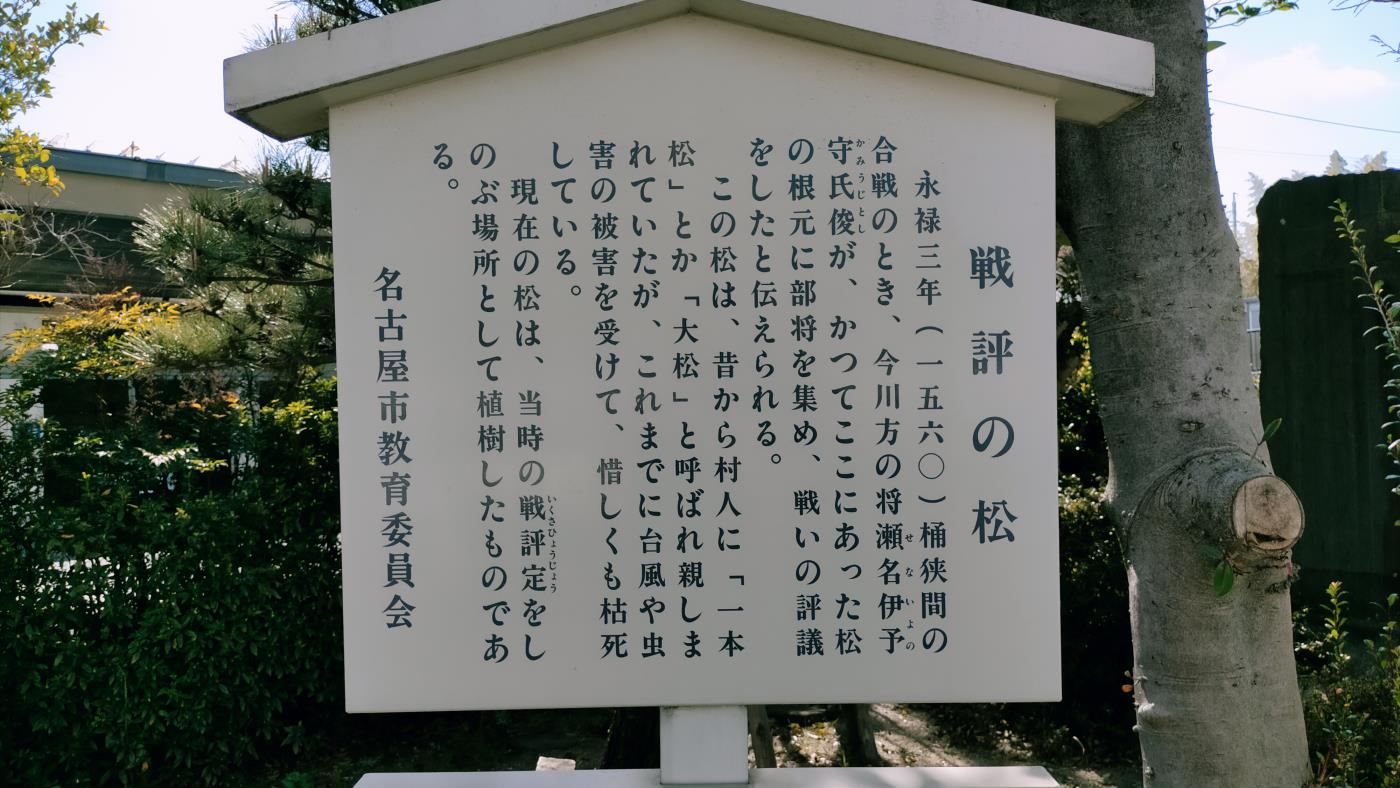 戦評の松
永禄三年(一五六〇)桶狭間の
合戦のとき、今川方の将瀬名伊予
守氏俊が、かつてここにあった松
の根元に部将を集め、戦いの評議
をしたと伝えられる。
この松は、昔から村人に「一本
松」とか「大松」と呼ばれ親しま
れていたが、これまでに台風や虫
害の被害を受けて、惜しくも枯死
している。
現在の松は、当時の戦評定をし
のぶ場所として植樹したものであ
る。
名古屋市教育委員会
せないよの
かみうじとし
いくさひょうじょう